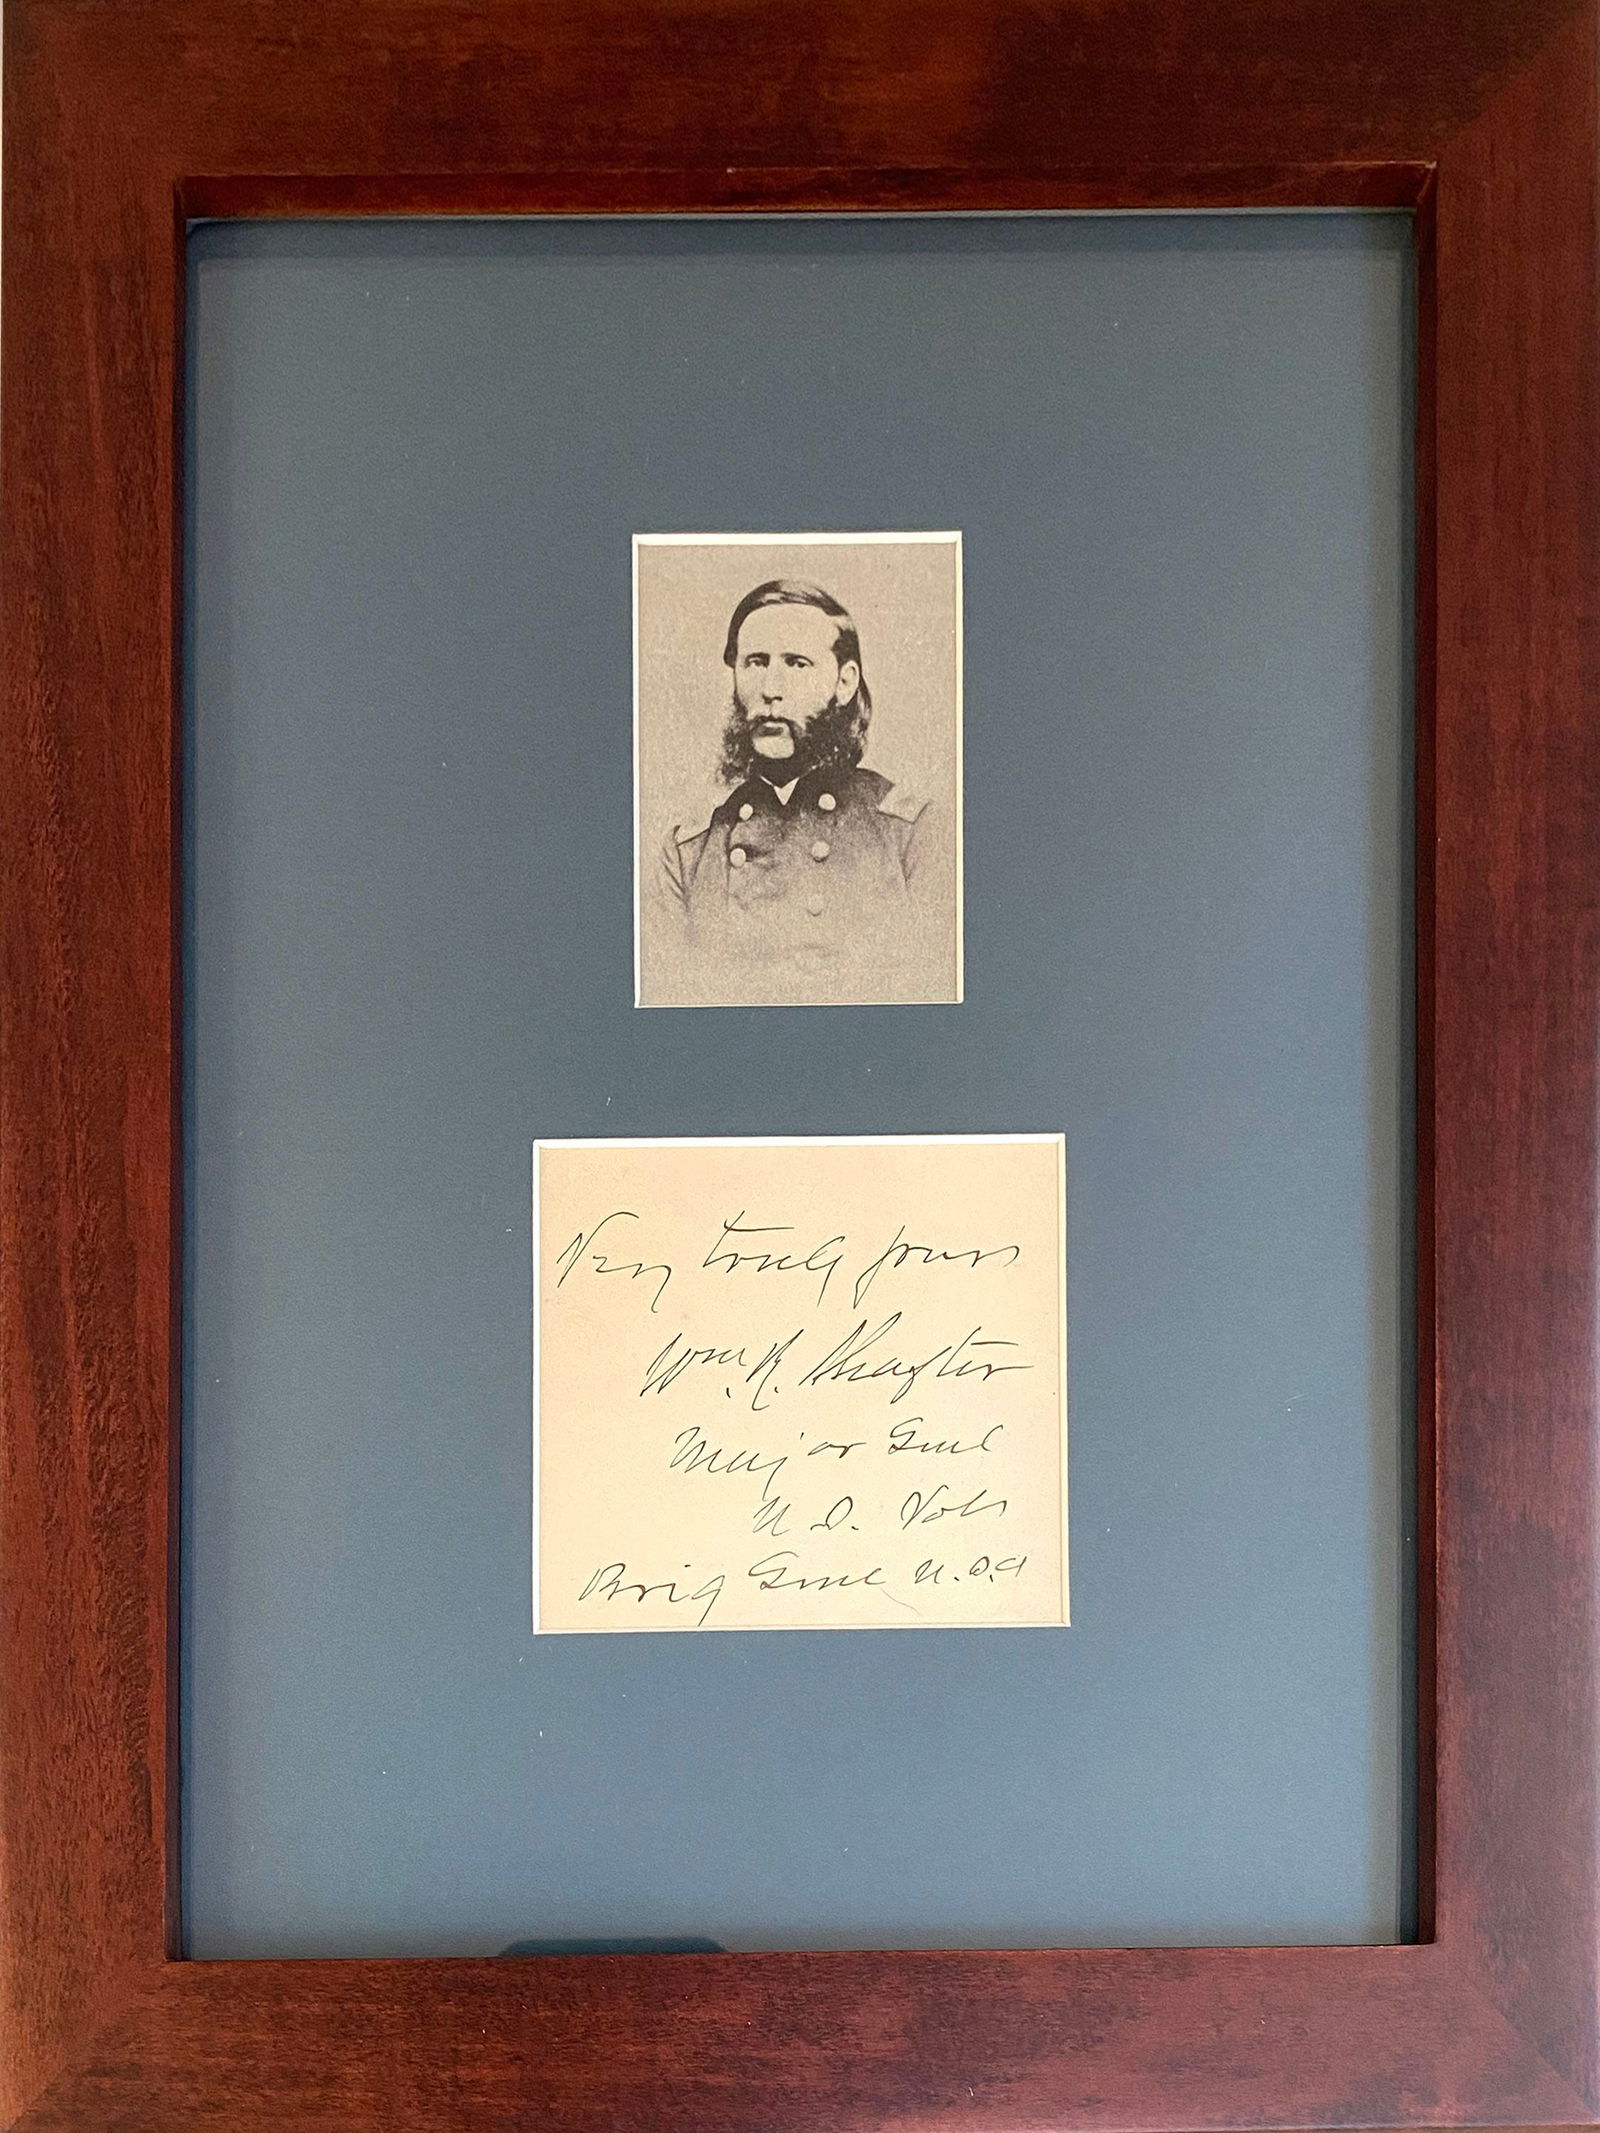 Very truly yours
Wm. R. Shafter
Major Genl
U. S. Vols
Brig Genl U.S.A